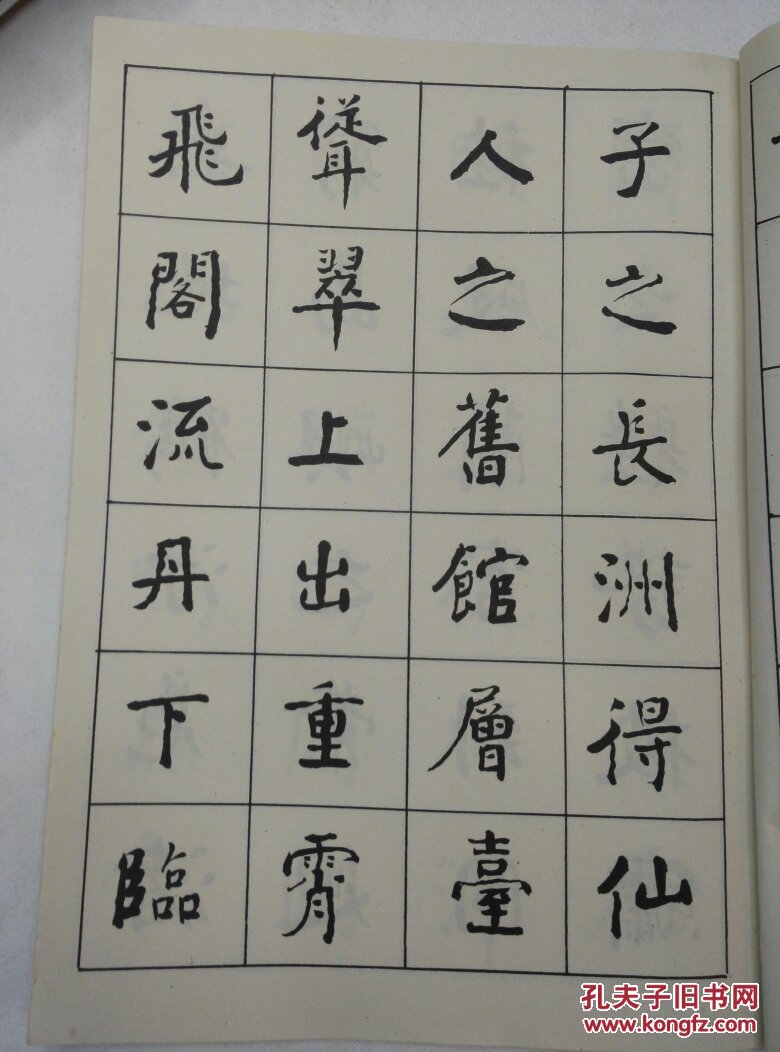 子之長洲得仙
人之舊館層臺
聳翠上出重霄
飛閣流丹下臨
孔夫子旧书网
kongfz.com